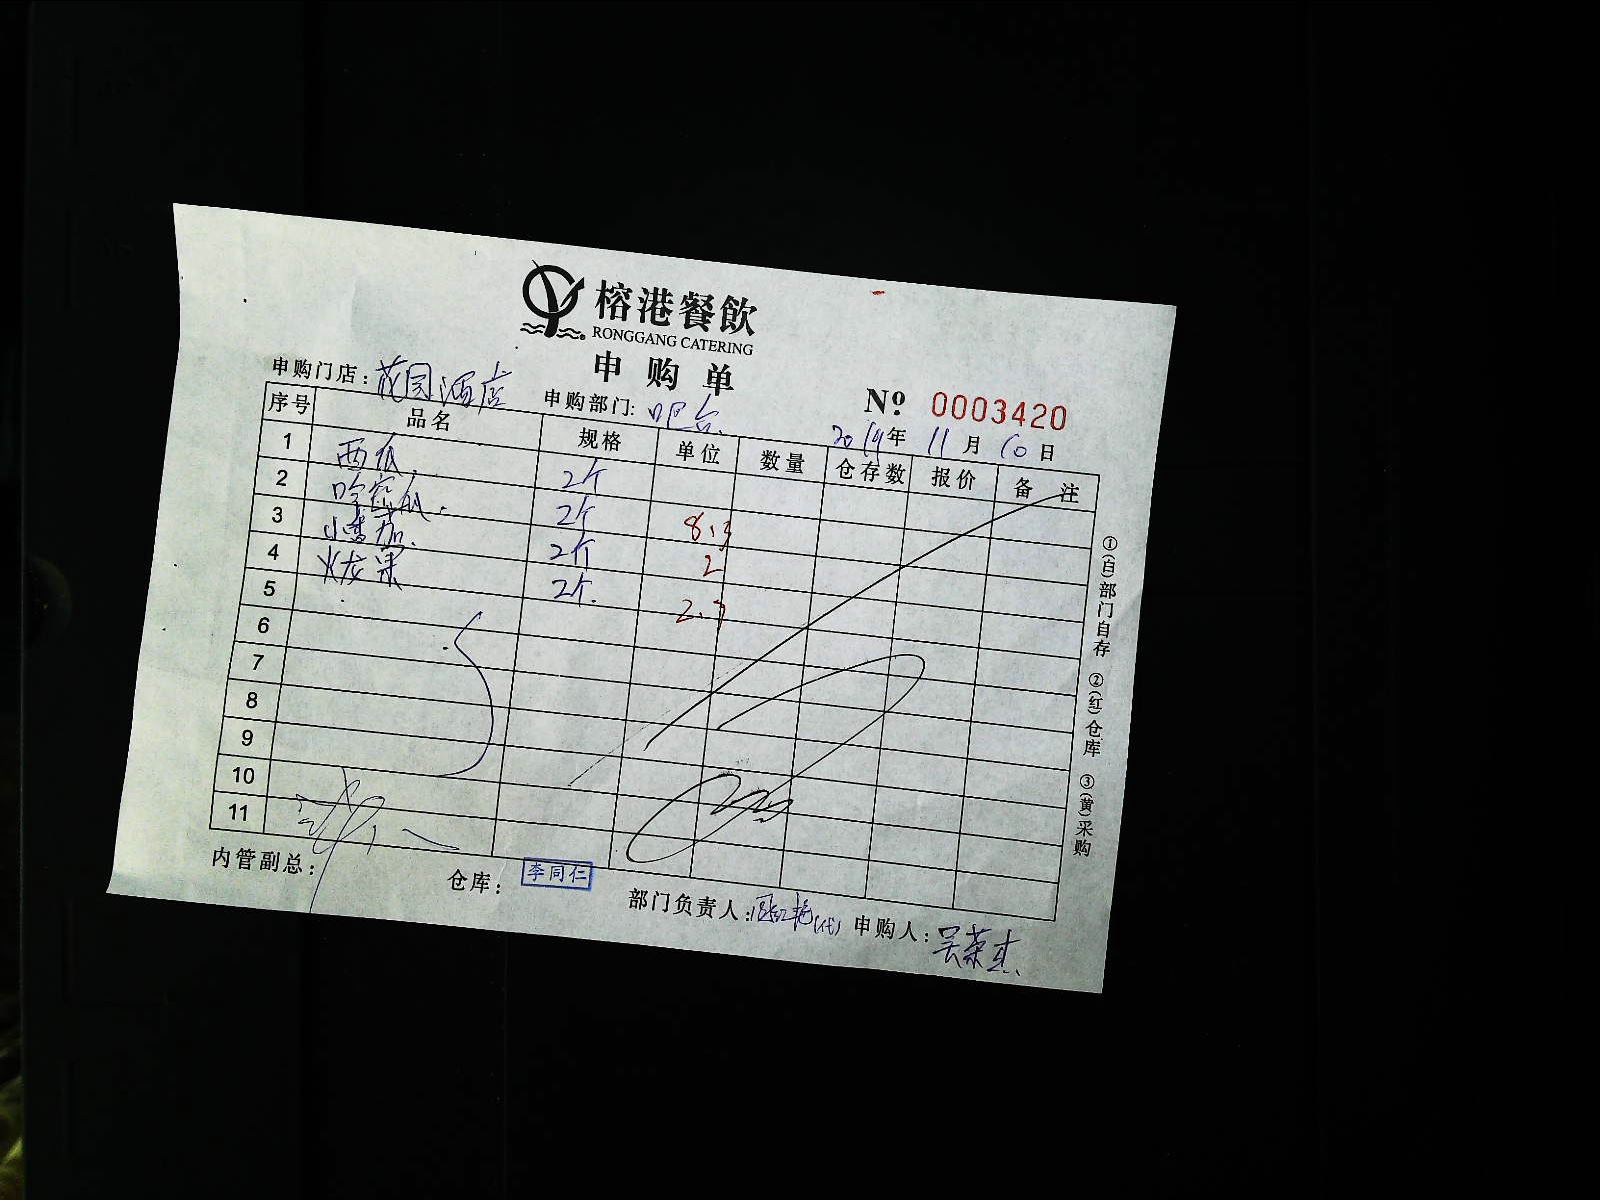 榕港餐飲
RONGGANG CATERING
申购单
申购门店：花园酒店 申购部门：吧台 № 0003420
2019年 11月 10日
序号 品名 规格 单位 数量 仓存数 报价 备注
1 西瓜 2个
2 哈密瓜 2个 8.3
3 小番茄 2个 2
4 火龙果 2个 2.7
5
6
7
8
9
10
11
①(白)部门自存 ②(红)仓库 ③(黄)采购
内管副总： 仓库：李同仁 部门负责人：(代) 申购人：吴荣杰